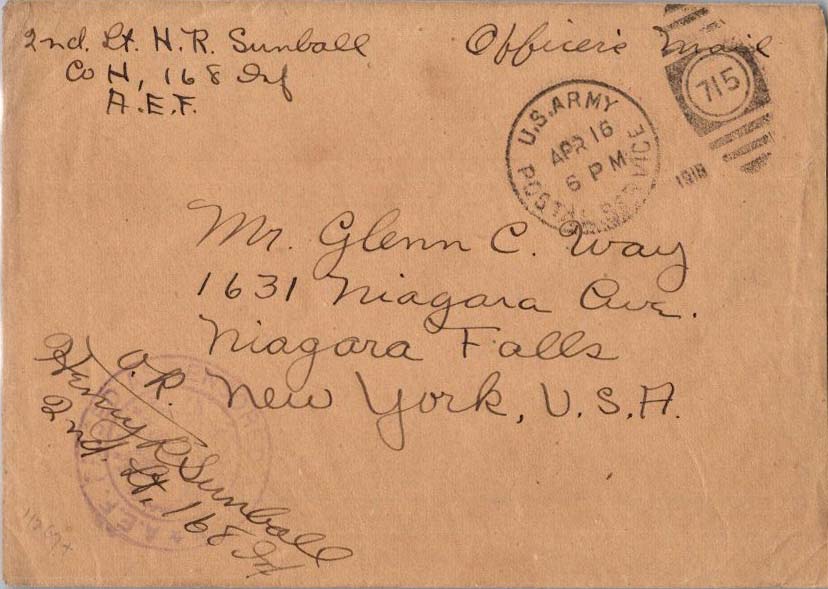 2nd. Lt. H. R. Sunball
Co H, 168 Inf
A.E.F.
Officer's Mail
U.S. ARMY
POSTAL SERVICE
APR 16
6 PM
1918
715
Mr. Glenn C. Way
1631 Niagara Ave.
Niagara Falls
New York, U.S.A.
O.K.
Henry R Sunball
2nd. Lt. 168 Inf
A.E.F.